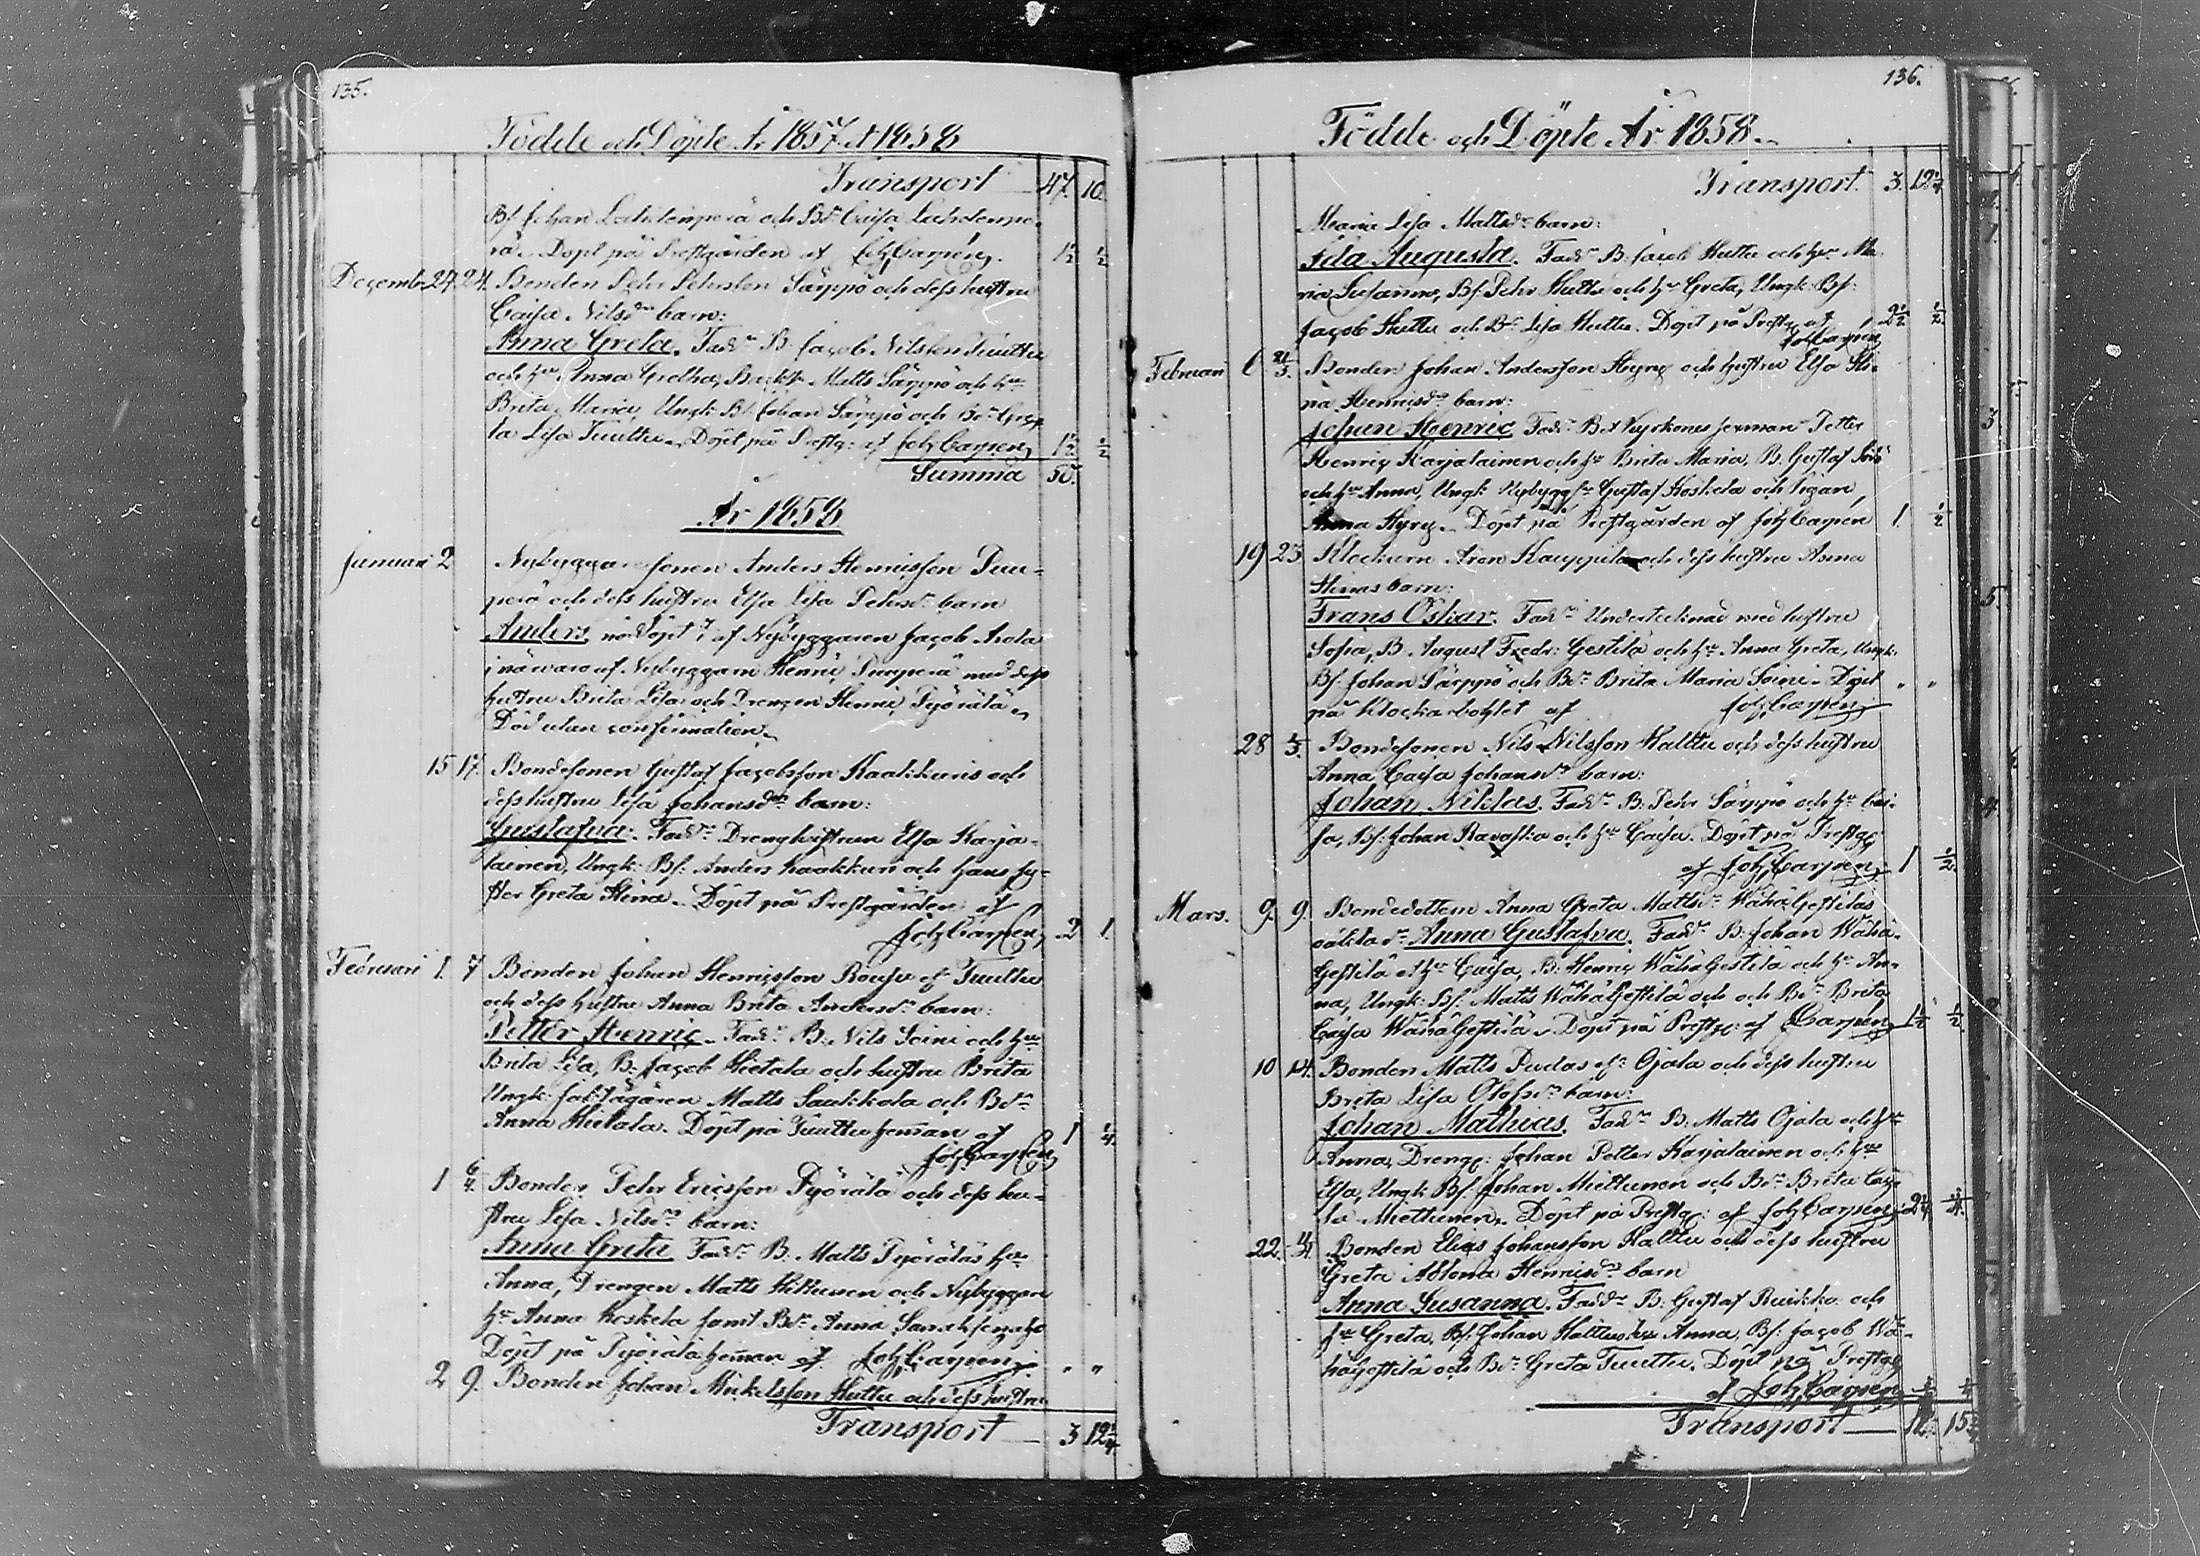 135.
Födde och Döpte År 1857 et 1858
Transport 47. 10.
Bs. Johan Lahdenperä och Bdr Caisa Lahdenpe-
rä. Döpt på Prestgården af Joh Carpen. 1½ ½
Decemb. 24. Bonden Pehr Pehrsson Särppö och dess hustru
Caisa Nilsdr barn:
Anna Greta. Faddr B. Jacob Nilsson Tuuttu
och hu Anna Gretha, Matts Särppö och hu
Brita Maria, Ungk: Bs. Johan Särppö och Bdr Gre-
ta Lisa Tuuttu. Döpt på Prestg: af Joh Carpen 1½ ½
Summa 50.
År 1858
Januari 2 Nybyggaresonen Anders Henricsson Puu-
perä och dess hustru Elsa Lisa Pehrsdr barn
Anders, nöddöpt af Nybyggaren Jacob Aola
i närvaro af Nybyggarn Henric Puuperä med dess
hustru Brita Lisa och Drengen Henric Pyörälä.
Död utan confirmation.
15 17. Bondesonen Gustaf Jacobsson Kaakkuris och
dess hustru Lisa Johansdr barn:
Gustafva. Faddr Drenghustrun Elsa Karja-
lainen, Ungk: Bs: Anders Kaakkuri och hans sy-
ster Greta Stina. Döpt på Prestgården af
Joh Carpen, 2 1.
Februari 1. 7 Bonden Johan Henricsson Rousu et Tuuttu
och dess hustru Anna Brita Andersdr barn:
Petter Henric. Faddr B. Nils Soini och hu
Brita Lisa, B. Jacob Hietala och hustru Brita
Ungk: Matts Saukkola och Bdr
Anna Hietala. Döpt på Tuuttu heman af
Joh Carpen 1 ¼
1 6/4 Bonden Pehr Ericsson Pyörälä och dess hu-
stru Lisa Nilsdr barn:
Anna Greta. Faddr B. Matts Pyöräläs hu
Anna, Drengen Matts Hiltunen och Nybyggare
hu Anna Koskela samt Bdr Anna
Döpt på Pyörälä heman af Joh Carpen. " "
2 9. Bonden Johan Mickelsson Huttu och dess hustru
Transport 3 12¼
136.
Födde och Döpte År 1858
Transport. 3. 12¼
Maria Lisa Mattsdr barn:
Ida Augusta. Faddr B. Jacob Huttu och hu Ma-
ria Susanna, Bs. Pehr Huttu och hu Greta, Ungk: Bs:
Jacob Huttu och Bdr Lisa Huttu. Döpt på Prestg af 2½ ½
Joh Carpen
Februari 6 21/3. Bonden Johan Andersson Hyry och hustru Elsa Sti-
na Henricsdr barn:
Johan Henric. Faddr B. et Kyrkones Petter
Henric Karjalainen och hu Brita Maria, B. Gustaf
och hu Anna, Ungk: Nybyggs: Gustaf Koskela och Pigan
Anna Hyry. Döpt på Prestgården af Joh Carpen 1. ½
19 23 Klockarn Aron Kauppila och dess hustru Anna
Stinas barn:
Frans Oskar. Faddr Undertecknad med hustru
Sofia, B. August Fredr: Gestilä och hu Anna Greta, Ungk:
Bs: Johan Särppö och Bdr Brita Maria Soini. Döpt " "
på Klockarbohlet af Joh Carpen
28 1/3. Bondesonen Nils Nilsson Halttu och dess hustru
Anna Caisa Johansdr barn:
Johan Niklas. Faddr B. Pehr Särppö och hu Cai-
sa, Bs: Johan Ravaska och hu Caisa. Döpt på Prestg
af Joh Carpen 1 ½.
Mars. 9. 9. Bondedottern Anna Greta Mattsdr WähäGestiläs
oäkta dr Anna Gustafva. Faddr B. Johan Wähä-
Gestilä et hu Caisa, B. Henric WähäGestilä och hu An-
na, Ungk: Bs. Matts WähäGestilä och och Bdr Brita
Caisa WähäGestilä. Döpt på Prestg: af Carpen 1½ ½
10 14. Bonden Matts Pudas et Ojala och dess hustru
Brita Lisa Olofsdr barn:
Johan Mathias. Faddr B. Matts Ojala och hu
Anna, Dreng: Johan Petter Karjalainen och hu
Elsa, Ungk: Bs. Johan Miettunen och Bdr Brita Cai-
sa Miettunen. Döpt på Prestg: af Joh Carpen 2¼ ¼.
22. 4/4. Bonden Elias Johansson Halttu och dess hustru
Greta Ablona Henricsdr barn
Anna Susanna. Faddr B. Gustaf Ruikka och
hu Greta, Bs. Johan Halttu och hu Anna, Bs: Jacob Wä-
häGestilä och Bdr Greta Tuuttu. Döpt på Prestg
af Joh Carpen
Transport 15